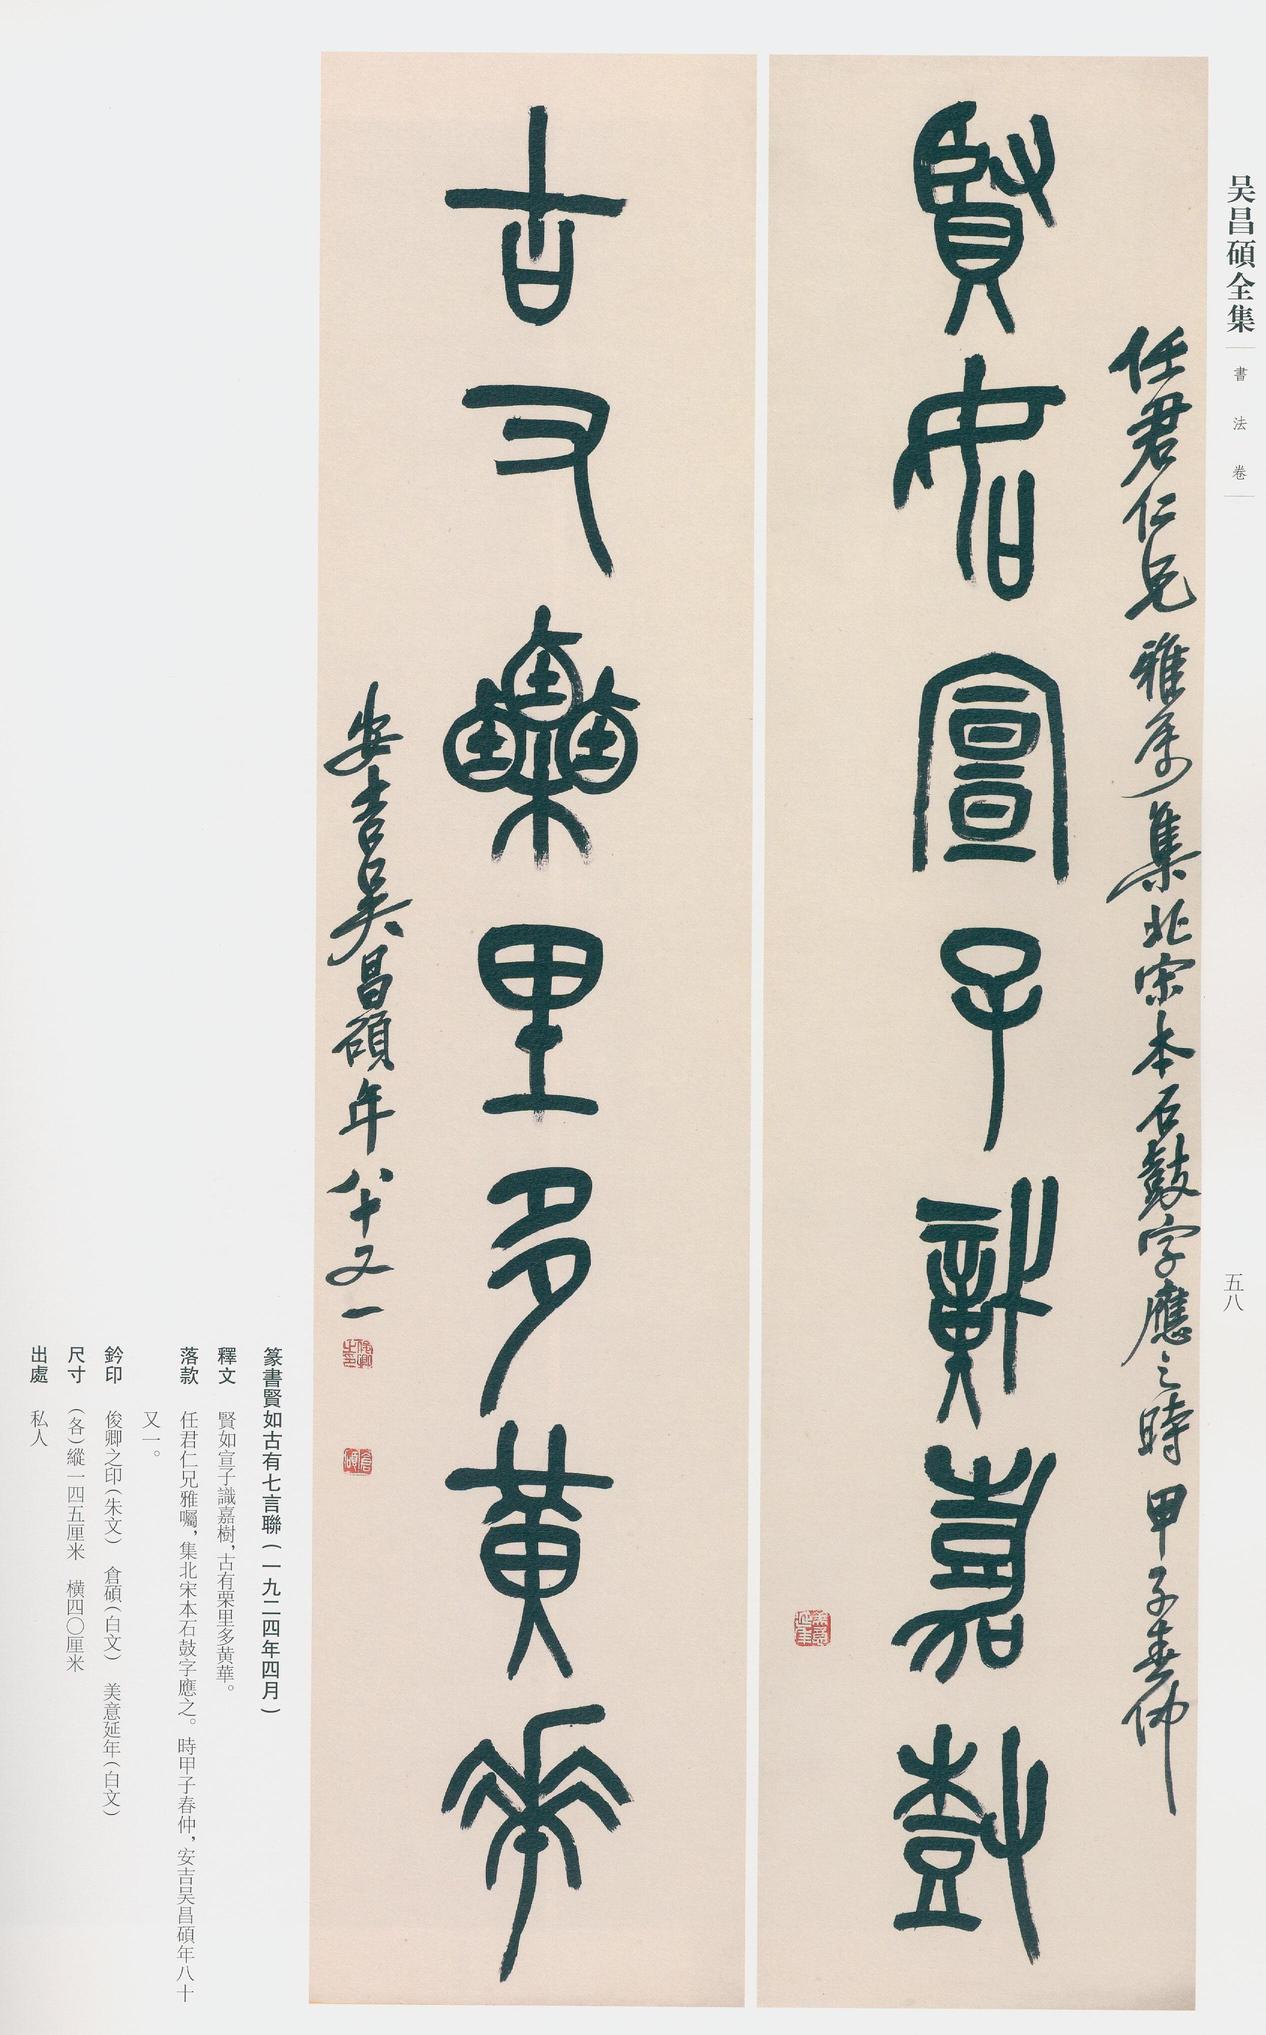 吴昌碩全集
書法卷
五八
任君仁兄雅属集北宋本石鼓字應之時甲子春仲
賢如宣子識嘉樹
美意延年
古又栗里多黄華
安吉吴昌碩年八十又一
俊卿之印
倉碩
篆書賢如古有七言聯(一九二四年四月)
釋文 賢如宣子識嘉樹,古有栗里多黄華。
落款 任君仁兄雅囑,集北宋本石鼓字應之。時甲子春仲,安吉吴昌碩年八十
又一。
鈐印 俊卿之印(朱文) 倉碩(白文) 美意延年(白文)
尺寸 (各)縱一四五厘米 橫四〇厘米
出處 私人